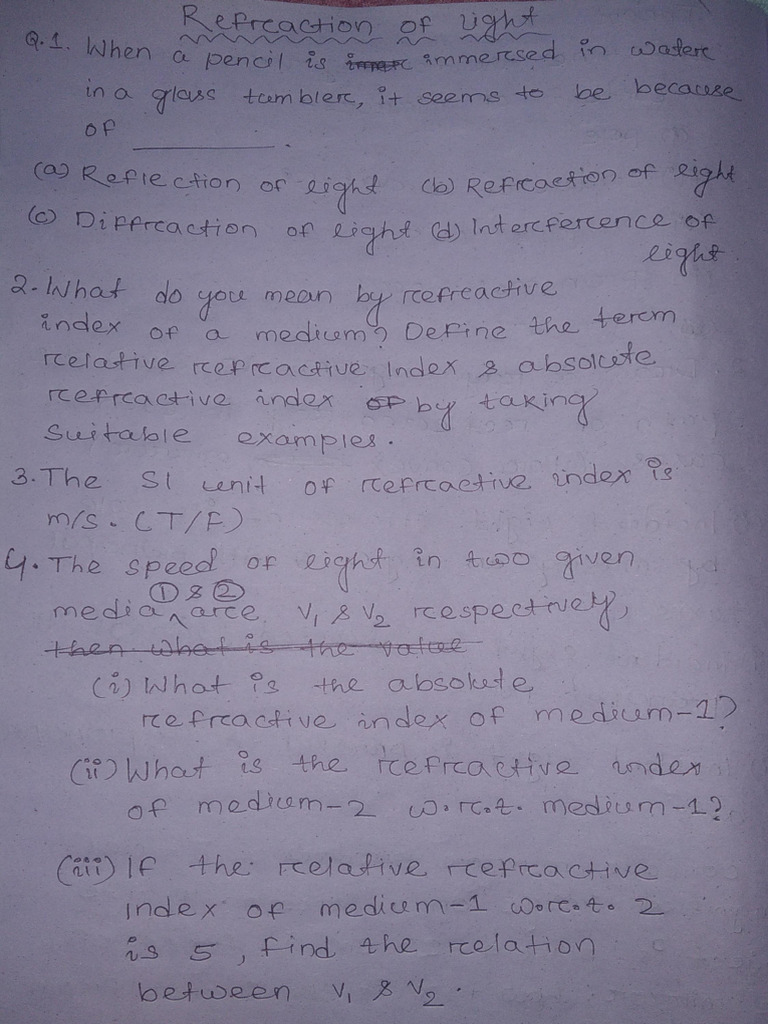 Refraction of light
Q.1. When a pencil is immersed in water
in a glass tumbler, it seems to be because
of ________.
(a) Reflection of light (b) Refraction of light
(c) Diffraction of light (d) Interference of
light
2. What do you mean by refractive
index of a medium? Define the term
relative refractive index & absolute
refractive index by taking
suitable examples.
3. The SI unit of refractive index is
m/s. (T/F)
4. The speed of light in two given
media ① & ② are v₁ & v₂ respectively,
then what is the value
(i) What is the absolute
refractive index of medium-1?
(ii) What is the refractive index
of medium-2 w.r.t. medium-1?
(iii) If the relative refractive
index of medium-1 w.r.t. 2
is 5, find the relation
between v₁ & v₂.